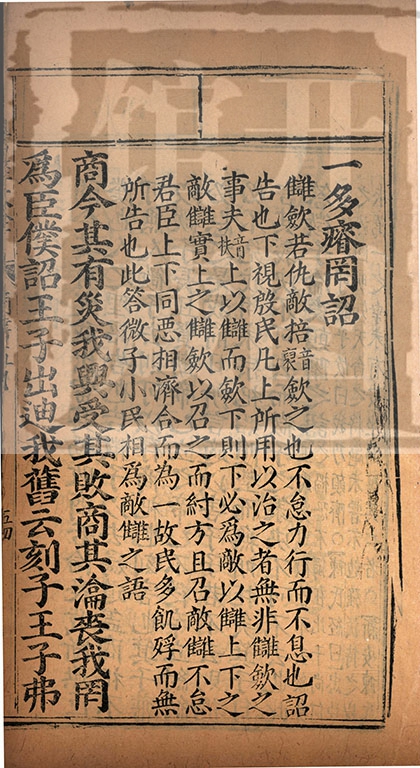 一多瘠罔詔
讎斂若仇敵掊音裒斂之也不怠力行而不息也詔
告也下視殷民凡上所用以治之者無非讎斂之
事夫音扶上以讎而斂下則下必爲敵以讎上下之
敵讎實上之讎斂以召之而紂方且召敵讎不怠
君臣上下同惡相濟合而為一故民多飢殍而無
所告也此答微子小民相爲敵讎之語
商今其有災我興受其敗商其淪喪我罔
爲臣僕詔王子出迪我舊云刻子王子弗